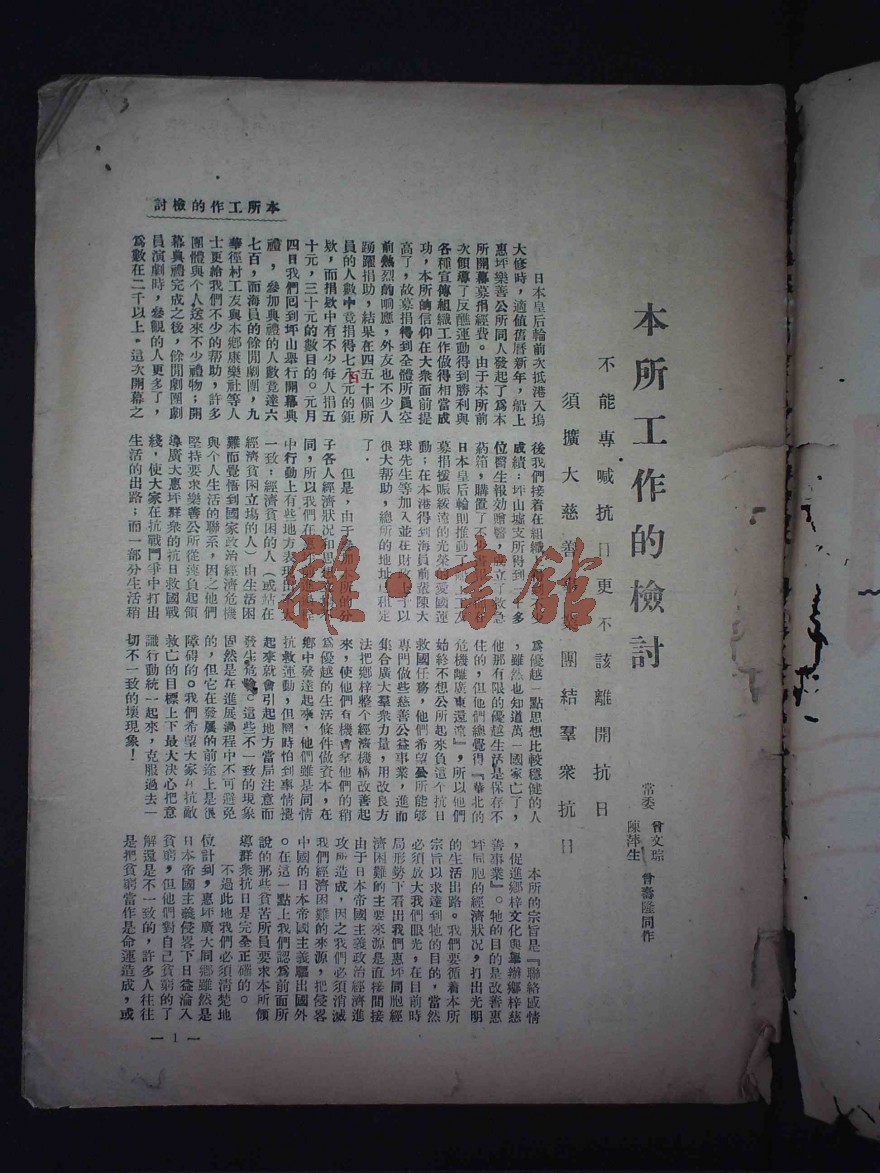 本所工作的檢討
不能專喊抗日更不該離開抗日
須擴大慈善團結羣衆抗日
常委 曾文琮 曾壽隆同作
陳萍生
日本皇后輪前次抵港入塢
大修時，適値舊曆新年，船上
惠坪樂善公所同人發起了爲本
所開幕募捐經費。由于本所前
次領導了反醜運動得到勝利與
各種宣傳組織工作做得相當成
功，本所的信仰在大衆面前提
高了，故募捐得到全體所員空
前熱烈的响應，外友也不少人
踴躍捐助，結果在四五十個所
員的人數中竟捐得七八百元的鉅
欵，而捐欵中有不少每人捐五
十元，三十元的數目的。元月
四日我們囘到坪山舉行開幕典
禮，參加典禮的人數竟達六
七百，而海員的餘閒劇團，九
華徑村工友與本鄉康樂社等人
士更給我們不少的帮助，許多
團體與个人送來不少禮物；開
幕典禮完成之後，餘閒劇團劇
員演劇時，參觀的人更多了，
爲數在二千以上。這次開幕之
後我們接着在組織
成績：坪山墟支所得到一千多
位醫生報効贈醫，成立了救急
葯箱，購置了不
日本皇后輪則推動了船上工友
募捐援賑綏遠的光榮的愛國運
動；在本港得到海員前輩陳大
球先生等加入並在財政上予以
很大帮助，總所的地址已租定
了．
但是，由于參加本所的分
子各人經濟狀况和思想
同，所以我們在
中行動上有些地方表現出
一致：經濟貧困的人（或站在
經濟貧困立塲的人）由生活困
難而覺悟到國家政治經濟危機
與个人生活的聯系，因之他們
堅持要求樂善公所從速負起領
導廣大惠坪群衆的抗日救國戰
綫，使大家在抗戰鬥爭中打出
生活的出路；而一部分生活稍
爲優越一點思想比較穩健的人
，雖然也知道萬一國家亡了，
他那有限的優越生活是保存不
住的，但他們總覺得『華北的
危機離廣東還遠』，所以他們
始終不想公所起來負這个抗日
救國任務，他們希望公所能够
專門做些慈善公益事業，進而
集合廣大羣衆力量，用改良方
法把鄉梓整个經濟機構改善起
來，使他們有機會拿他們的稍
爲優越的生活條件做資本，在
鄉中發達起來，他們雖是同情
抗救運動，但同時怕到事情攪
起來就會引起地方當局注意而
發生危險。這些不一致的現象
固然是在進展過程中不可避免
的，但它在發展的前途上是很
障碍的。我們希望大家在抗敵
救亡的目標上下最大决心把意
識行動統一起來，克服過去一
切不一致的壞現象！
本所的宗旨是『聯絡感情
，促進鄉梓文化與舉辦鄉梓慈
善事業』。牠的目的是改善惠
坪同胞的經濟狀况，打出光明
的生活出路。我們要循着本所
宗旨以求達到牠的目的，當然
必須放大我們眼光，在目前時
局形勢下看出我們惠坪同胞經
濟困難的主要來源是直接間接
由于日本帝國主義政治經濟進
攻所造成，因之我們必須消滅
我們經濟困難的來源，把侵畧
中國的日本帝國主義驅出國外
。在這一點上我們認爲前面所
說的那些貧苦所員要求本所領
導群衆抗日是完全正確的。
不過此地我們必須清楚地
位計到，惠坪廣大同鄉雖然是
日本帝國主義侵畧下日益淪入
貧窮，但他們對自己貧窮的了
解還是不一致的，許多人往往
是把貧窮當作是命運造成，或
本所工作的檢討
— 1 —
雜·書館